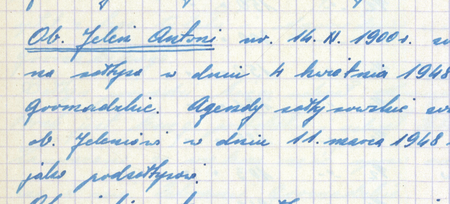 Ob. Jeleń Antoni ur. 14.IV.1900 r.
na sołtysa w dniu 4 kwietnia 1948
Gromadzkie. Agendy sołtysowskie
ob. Jeleniowi w dniu 11. marca 1948
jako podsołtysowi.